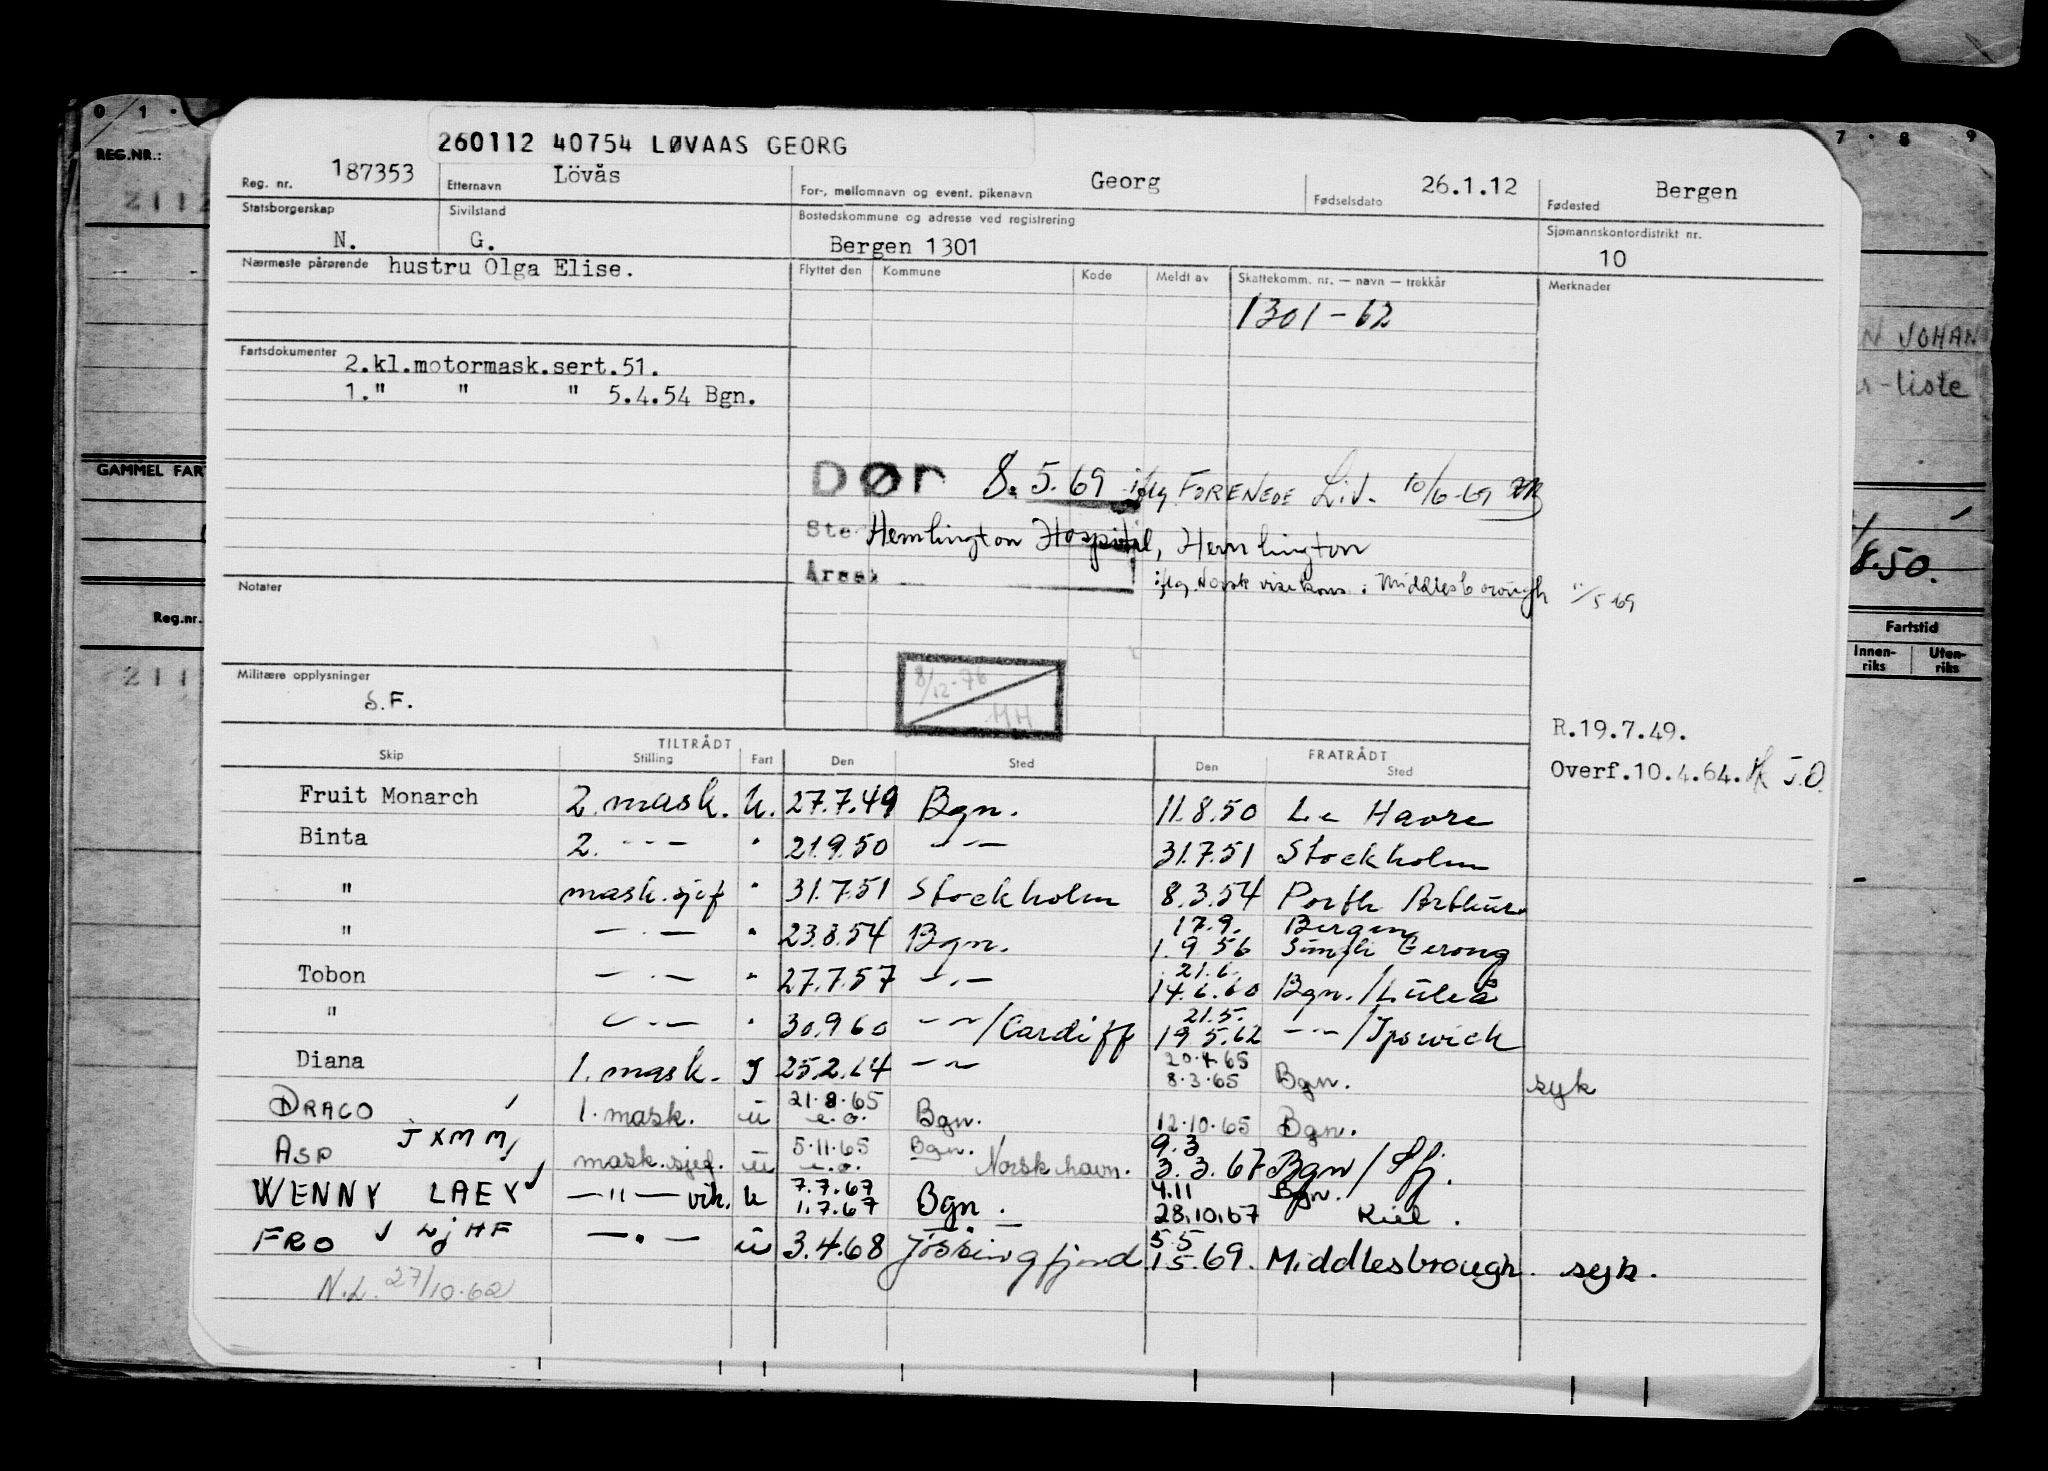 0 / 1 .
7 . 8 9
REG.NR.:
260112 40754 LØVAAS GEORG
Reg. nr. 187353 Etternavn Lövås For-, mellomnavn og event. pikenavn Georg Fødselsdato 26.1.12 Fødested Bergen
Statsborgerskap N. Sivilstand G. Bostedskommune og adresse ved registrering Bergen 1301 Sjømannskontordistrikt nr. 10
Nærmeste pårørende hustru Olga Elise. Flyttet den Kommune Kode Meldt av Skattekomm. nr. — navn — trekkår Merknader
1301-62
N JOHAN
-liste
Fartsdokumenter 2.kl.motormask.sert.51.
1." " " 5.4.54 Bgn.
GAMMEL FAR
DØr 8.5.69 iflg FORENEDE Liv. 10/6-69
Ste Hemlington Hospital, Hemlington
Årsak iflg. Norsk visekons. i Middlesborough 11/5 69
8.50.
Notater
Reg.nr.
Fartstid
Innen-riks Uten-riks
Militære opplysninger
S.F.
8/12-76
HH
R.19.7.49.
Overf.10.4.64. J.O.
TILTRÅDT FRATRÅDT
Skip Stilling Fart Den Sted Den Sted
Fruit Monarch 2. mask. u. 27.7.49 Bgn. 11.8.50 Le Havre
Binta 2. --- " 21.9.50 -"- 31.7.51 Stockholm
" mask.sjef " 31.7.51 Stockholm 8.3.54 Porth Arthur
" -"- " 23.8.54 Bgn. 17.9. Bergen
1.9 56 Sungli Gerong
Tobon -"- " 27.7.57 -"- 21.6.
14.6.60 Bgn./Luleå
" -"- " 30.9 60 -"-/Cardiff 21.5.
19 5.62 -"-/Ipswich
Diana 1. mask. I 25.2.64 -"- 20.4.65
8.3.65 Bgn. syk
DRACO 1. mask. u 21.8.65 e.o. Bgn. 12.10.65 Bgn.
ASP JXMM mask.sjef. u 5.11.65 e.o. Bgn. Norsk havn. 9.3
3.3.67 Bgn / Sfj.
WENNY LAEY -"- vik. u 7.7.67
1.7.67 Bgn. 4.11 Bgn.
28.10.67 Kiel.
FRO LJHF -"- u 3.4.68 Jössingfjord 5.5
1 5.69. Middlesbrough. syk.
N.L. 27/10.62